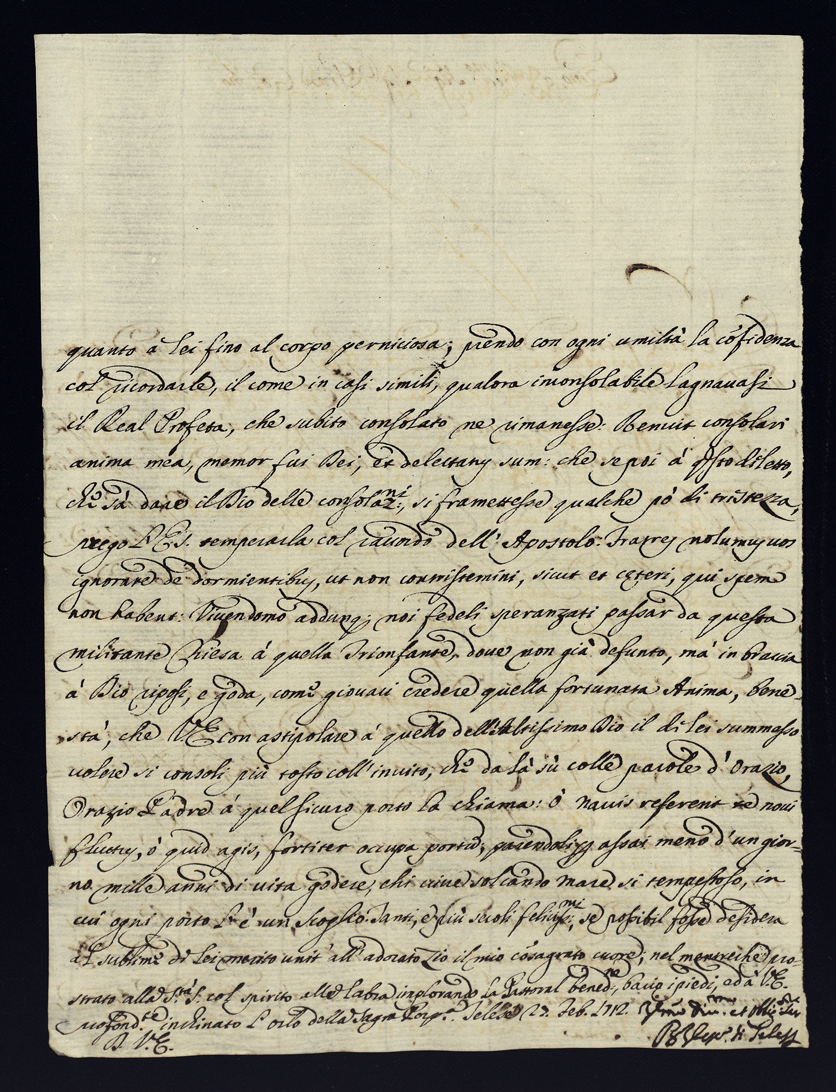 quanto a lei fino al corpo perniciosa; prendo con ogni umiltà la cõfidenza
col ricordarle, il come in casi simili, qualora inconsolabile lagnavasi
il Real Profeta, che subito consolato ne rimanesse: Renuit consolari
anima mea, memor fui Dei, et delectatus sum: che se poi à qsto diletto,
che sà dare il Dio delle consolazni, si framettesse qualche pò di tristezza,
prego V.E.S. temperarla col dell' Apostolo: Fratres nolumus vos
ignorare de dormientibus, ut non contristemini, sicut et cęteri, qui spem
non habent: Vivendomo addunq; noi fedeli speranzati passar da questa
militante Chiesa à quella Trionfante, dove non già defunto, mà in braccia
à Dio riposi, e goda, come giovaci credere quella fortunata Anima, bene
stà, che V.E. con astipolare à quello dell'Altissimo Dio il di lei summesso
volere si consoli più tosto coll' invito, che da là sù colle parole d' Orazio,
Orazio Padre à quel sicuro porto la chiama: ò navis referent te novi
fluctus, ò quid agis, fortiter occupa portũ; assai meno d' un gior-
no mille anni di vita godere, chi vive solcando mare sì tempestoso, in
cui ogni porto è un scoglio. Tanti, e più secoli felicissmi, se possibil fosse desidera
al sublime di lei merito unit' all' adorat' Zio il mio cõsagrato cuore; nel mentreche pro-
strato alla Sta S. col spirito alle labra implorando la Pastoral benedne, bacio i piedi, ed à V.E.
profondte inchinato l' orlo della Sagra Porpa. Telese 23. Feb. 1712.
D. V.E.